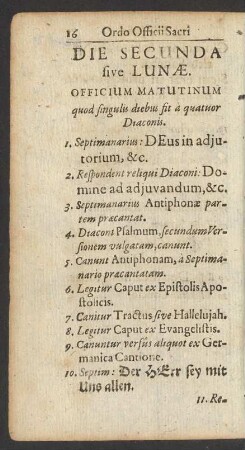 16 Ordo Officii Sacri
DIE SECUNDA
sive LUNÆ.
OFFICIUM MATUTINUM
quod singulis diebus fit à quatuor
Diaconis.
1. Septimanarius: DEus in adju-
torium, &c.
2. Respondent reliqui Diaconi: Do-
mine ad adjuvandum, &c.
3. Septimanarius Antiphonæ par-
tem præcantat.
4. Diaconi Psalmum, secundum Ver-
sionem vulgatam, canunt.
5. Canunt Antiphonam, à Septima-
nario præcantatam.
6. Legitur Caput ex Epistolis Apo-
stolicis.
7. Canitur Tractus sive Hallelujah.
8. Legitur Caput ex Evangelistis.
9. Canuntur versùs aliquot ex Ger-
manica Cantione.
10. Septim: Der HErr sey mit
Uns allen.
11. Re-